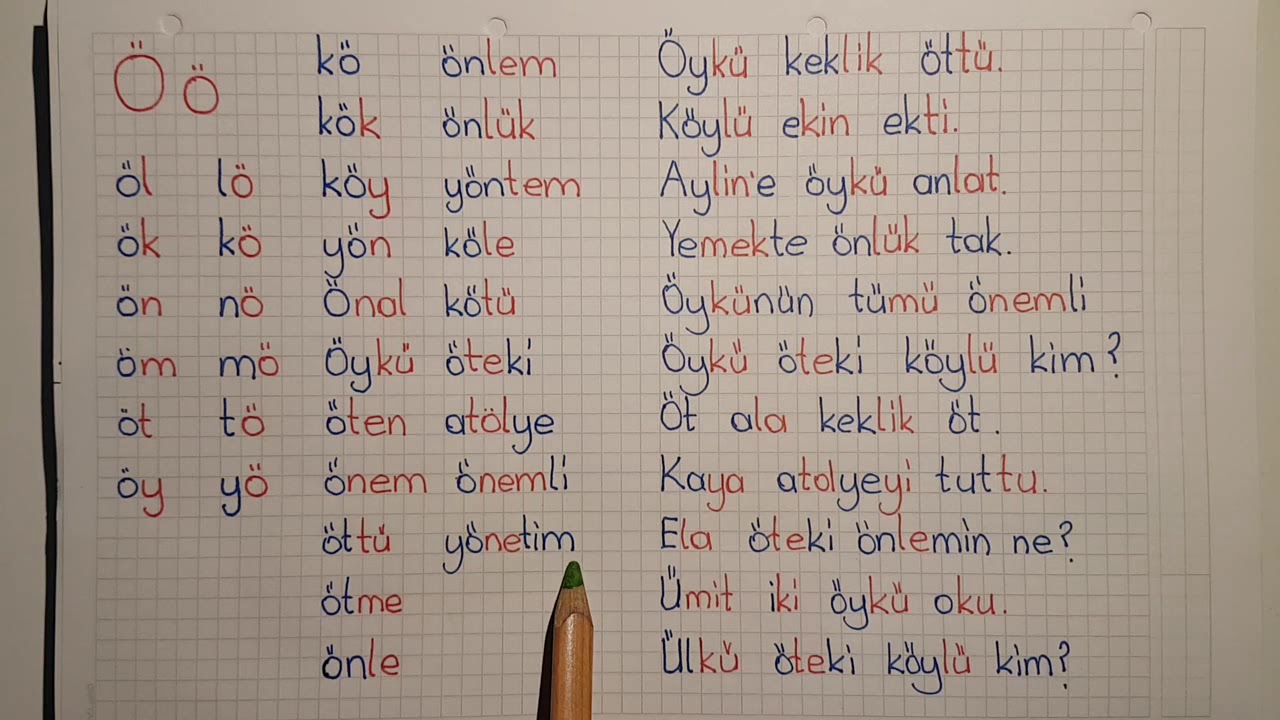 Ö ö
öl lö
ök kö
ön nö
öm mö
öt tö
öy yö
kö önlem
kök önlük
köy yöntem
yön köle
Önal kötü
Öykü öteki
öten atölye
önem önemli
öttü yönetim
ötme
önle
Öykü keklik öttü.
Köylü ekin ekti.
Aylin'e öykü anlat.
Yemekte önlük tak.
Öykünün tümü önemli
Öykü öteki köylü kim?
Öt ala keklik öt.
Kaya atolyeyi tuttu.
Ela öteki önlemin ne?
Ümit iki öykü oku.
Ülkü öteki köylü kim?